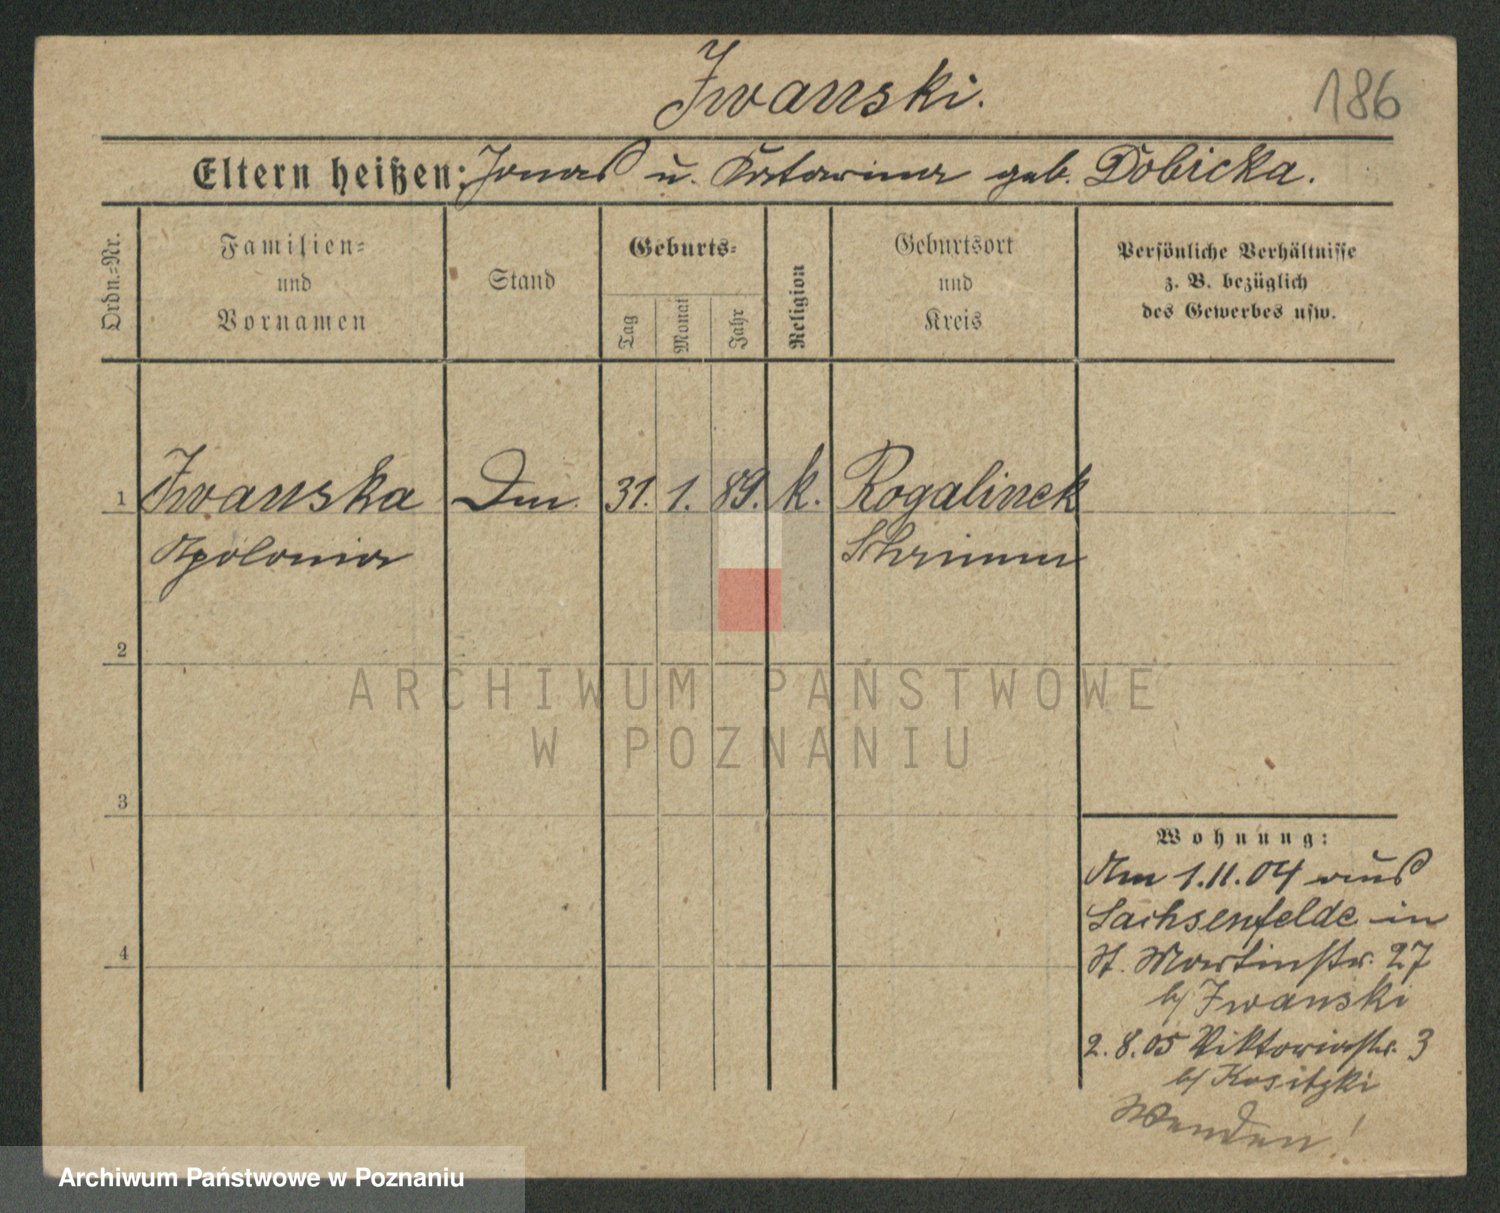 Iwanski.
186
Eltern heißen: Jonas u. Katarina geb. Dobicka.
Ordn.-Nr.
Familien-
und
Vornamen
Stand
Geburts-
Tag
Monat
Jahr
Religion
Geburtsort
und
Kreis
Persönliche Verhältnisse
z. B. bezüglich
des Gewerbes usw.
1 Iwanska 31. 1. 89. k. Rogalinek
Apolonia Schrimm
2
ARCHIWUM PAŃSTWOWE
W POZNANIU
3
Wohnung:
Am 1.11.04 aus
Sachsenfelde in
St. Martinstr. 27
b/ Iwanski
4
2.8.05 Viktoriastr. 3
b/ Kositzki
Wenden!
Archiwum Państwowe w Poznaniu